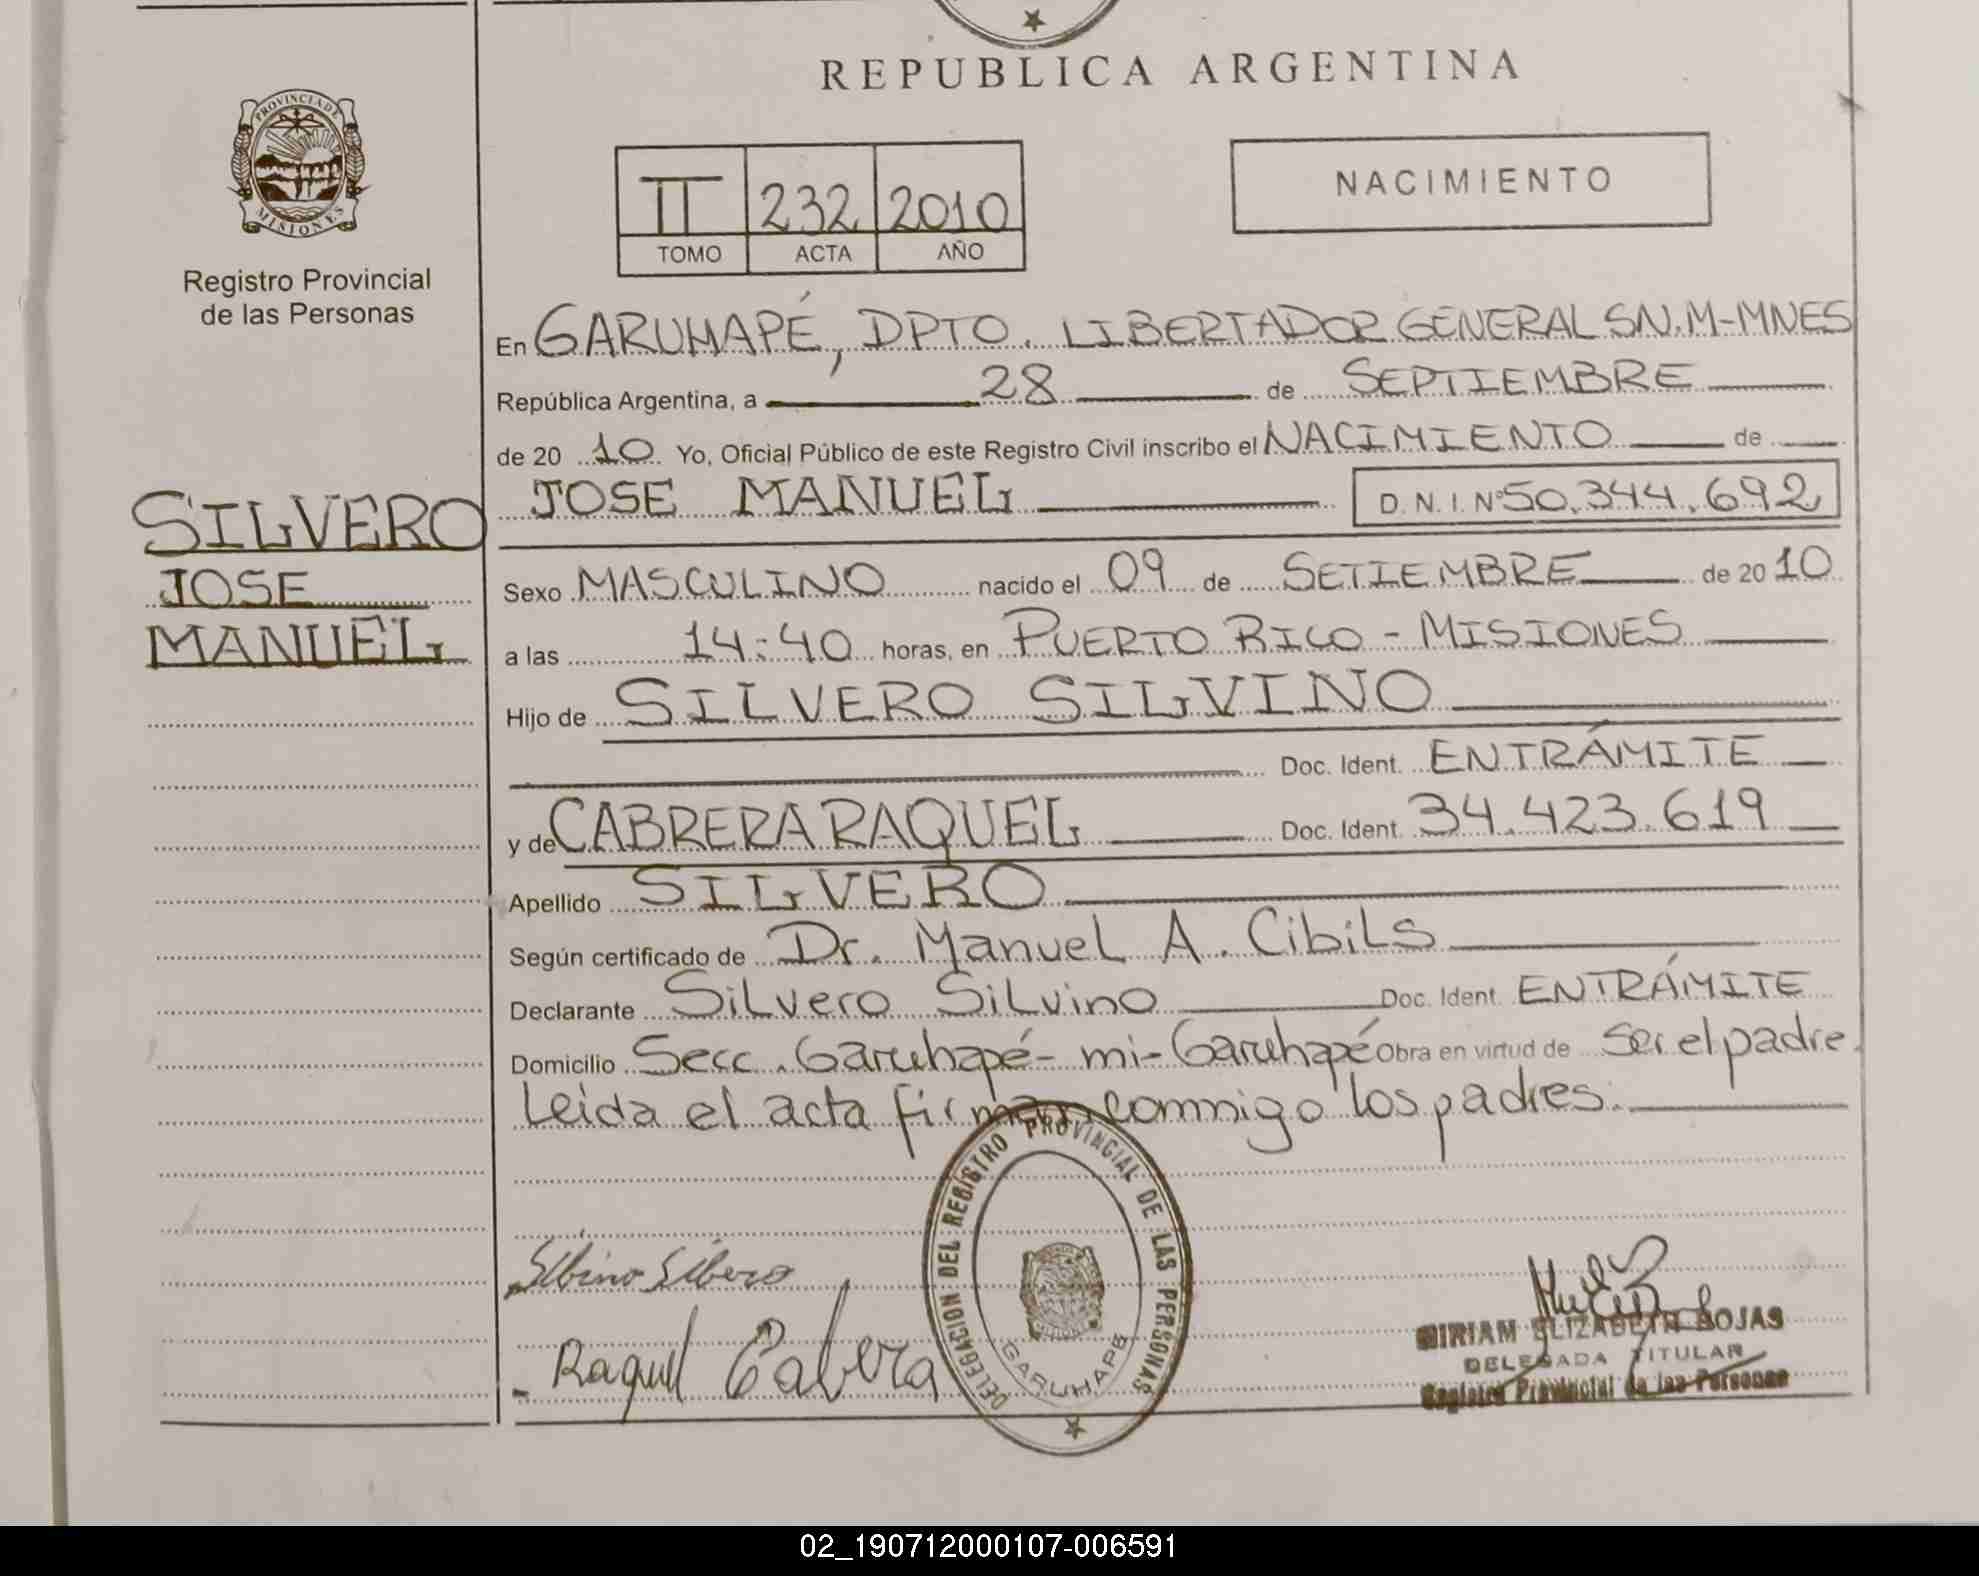 REPUBLICA ARGENTINA
PROVINCIA DE
MISIONES
Registro Provincial
de las Personas
II 232 2010
TOMO ACTA AÑO
NACIMIENTO
En GARUHAPÉ, DPTO. LIBERTADOR GENERAL SN.M-MNES
República Argentina, a 28 de SEPTIEMBRE
de 20 10 Yo, Oficial Público de este Registro Civil inscribo el NACIMIENTO de
SILVERO
JOSE
MANUEL
JOSE MANUEL D.N.I. Nº 50.344.692
Sexo MASCULINO nacido el 09 de SETIEMBRE de 20 10
a las 14:40 horas, en PUERTO RICO - MISIONES
Hijo de SILVERO SILVINO
Doc. Ident. ENTRÁMITE
y de CABRERA RAQUEL Doc. Ident. 34.423.619
Apellido SILVERO
Según certificado de Dr. Manuel A. Cibils
Declarante Silvero Silvino Doc. Ident. ENTRÁMITE
Domicilio Secc. Garuhapé- mi- Garuhapé Obra en virtud de Ser el padre.
Leida el acta firman commigo los padres.
DELEGACION DEL REGISTRO PROVINCIAL DE LAS PERSONAS
GARUHAPE
Silbino Silbero
Raquel Cabrera
MIRIAM ELIZABETH ROJAS
DELEGADA TITULAR
Registro Provincial de las Personas
02_190712000107-006591